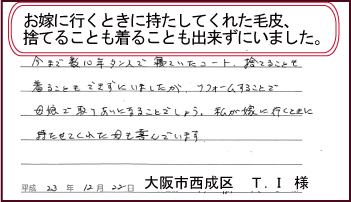 お嫁に行くときに持たしてくれた毛皮、
捨てることも着ることも出来ずにいました。
今まで数10年タンスで寝ていたコート、捨てることも
着ることもできずにいましたが、リフォームすることで
母娘で取りあいになることでしょう。私が嫁に行くときに
持たせてくれた母も喜んでいます。
平成 23 年 12 月 22 日 大阪市西成区 T. I 様